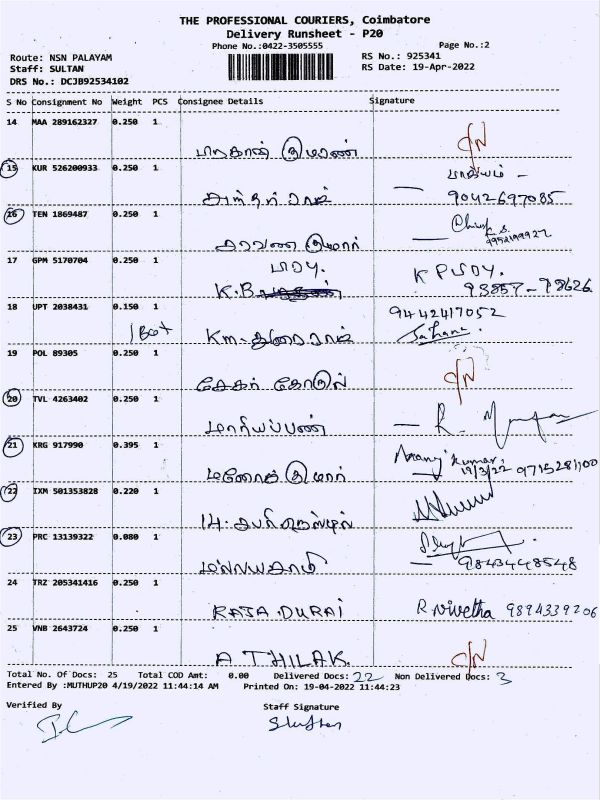 THE PROFESSIONAL COURIERS, Coimbatore
Delivery Runsheet - P20
Phone No.:0422-3505555
Page No.:2
Route: NSN PALAYAM
RS No.: 925341
Staff: SULTAN
RS Date: 19-Apr-2022
DRS No.: DCJB92534102
S No Consignment No Weight PCS Consignee Details Signature
14 MAA 289162327 0.250 1
15 KUR 526200933 0.250 1
9042697085
16 TEN 1869487 0.250 1
9952199927
சரவண குமார்
17 GPM 5170704 0.250 1
K.B
93857-93626
18 UPT 2038431 0.150 1
9442417052
1 Box
Km. துரைராம்
19 POL 89305 0.250 1
சேகர் கோகுல்
20 TVL 4263402 0.250 1
மாரியப்பண்
21 KRG 917990 0.395 1
Manoj kumar,
19/3/22 9715281100
மனோஜ் குமார்
22 IXM 501353828 0.220 1
23 PRC 13139322 0.080 1
9843448548
24 TRZ 205341416 0.250 1
RAJA DURAI R. Nivetha 9894339206
25 VNB 2643724 0.250 1
A THILAK.
Total No. Of Docs: 25 Total COD Amt: 0.00 Delivered Docs: 22 Non Delivered Docs: 3
Entered By :MUTHUP20 4/19/2022 11:44:14 AM Printed On: 19-04-2022 11:44:23
Verified By Staff Signature